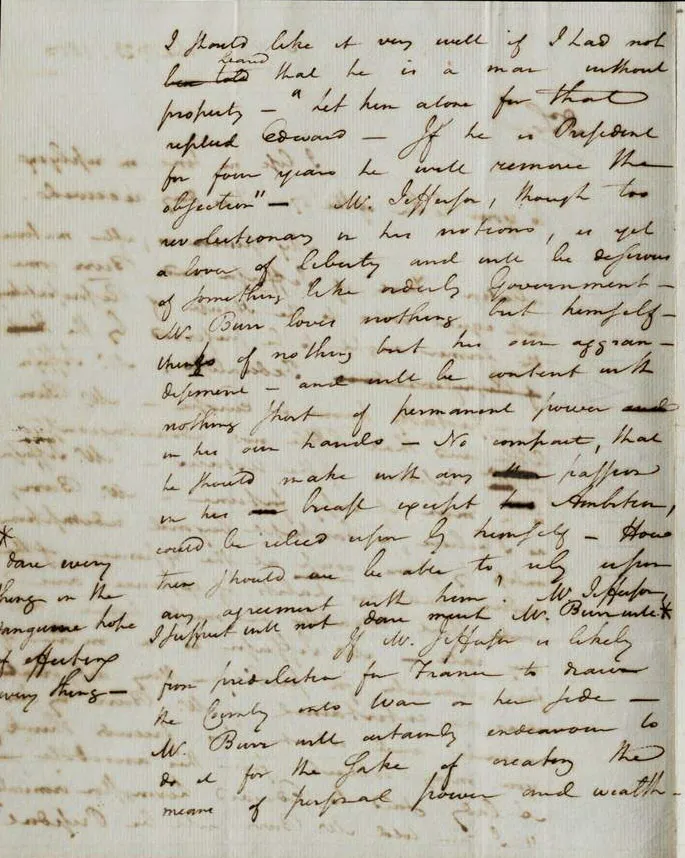 I should like it very well if I had not
been told heard that he is a man without
property — "Let him alone for that
replied Edward — If he is President
for four years he will remove the
objection" — Mr. Jefferson, though too
revolutionary in his notions, is yet
a lover of liberty and will be desirous
of something like orderly Government —
Mr. Burr loves nothing but himself —
thinks of nothing but his own aggran-
disement — and will be content with
nothing short of permanent power and
in his own hands — No compact, that
he should make with any passion
in his breast except his Ambition,
could be relied upon by himself — How
then should we be able to rely upon
any agreement with him? Mr. Jefferson,
I suspect will not dare much Mr. Burr will *
If Mr. Jefferson is likely
from predilection for France to draw
the Country into War on her side —
Mr. Burr will certainly endeavour to
do it for the sake of creating the
means of personal power and wealth —
*
dare every
thing in the
sanguine hope
of effecting
every thing —